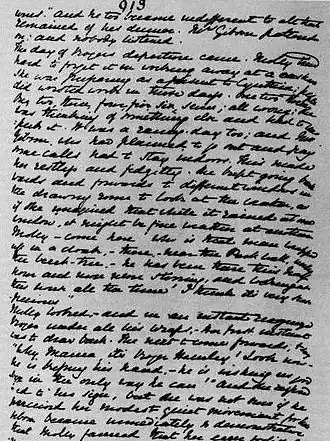 913
ones." and he too became indifferent to all that
remained of his dinner. Mr Gibson pattered
on; and nobody listened.
The day of Roger's departure came. Molly tried
hard to forget it in working away at a cushion
she was preparing as a present to Cynthia; people
did worsted-work in those days. One, two, three.
One, two, three, four, five, six, seven; all wrong; she
was thinking of something else, and had to un-
pick it. It was a rainy day too; and Mrs
Gibson, who had planned to go out and pay
some calls, had to stay indoors. This made
her restless and fidgetty. She kept going back-
wards and forwards to different windows in
the drawing-room to look at the weather, as
if she imagined that while it rained at one
window, it might be fine weather at another.
Molly - come here! who is that man wrapped
up in a cloak, - there, - near the Park wall, under
the beech-tree - he has been there this half-
hour and more, never stirring, and looking at
this house all the time! I think it's very sus-
picious."
Molly looked, - and in an instant recognized
Roger under all his wraps. Her first instinct
was to draw back. The next to come forwards, &
"Why, Mamma, it's Roger Hamley! Look now -
he is kissing his hand, - he is wishing us good-
bye in the only way he can!" And she responded
to his sign, but she was not sure if he
perceived her modest quiet movement, for Mrs
Gibson became immediately so demonstrative
that Molly fancied that her